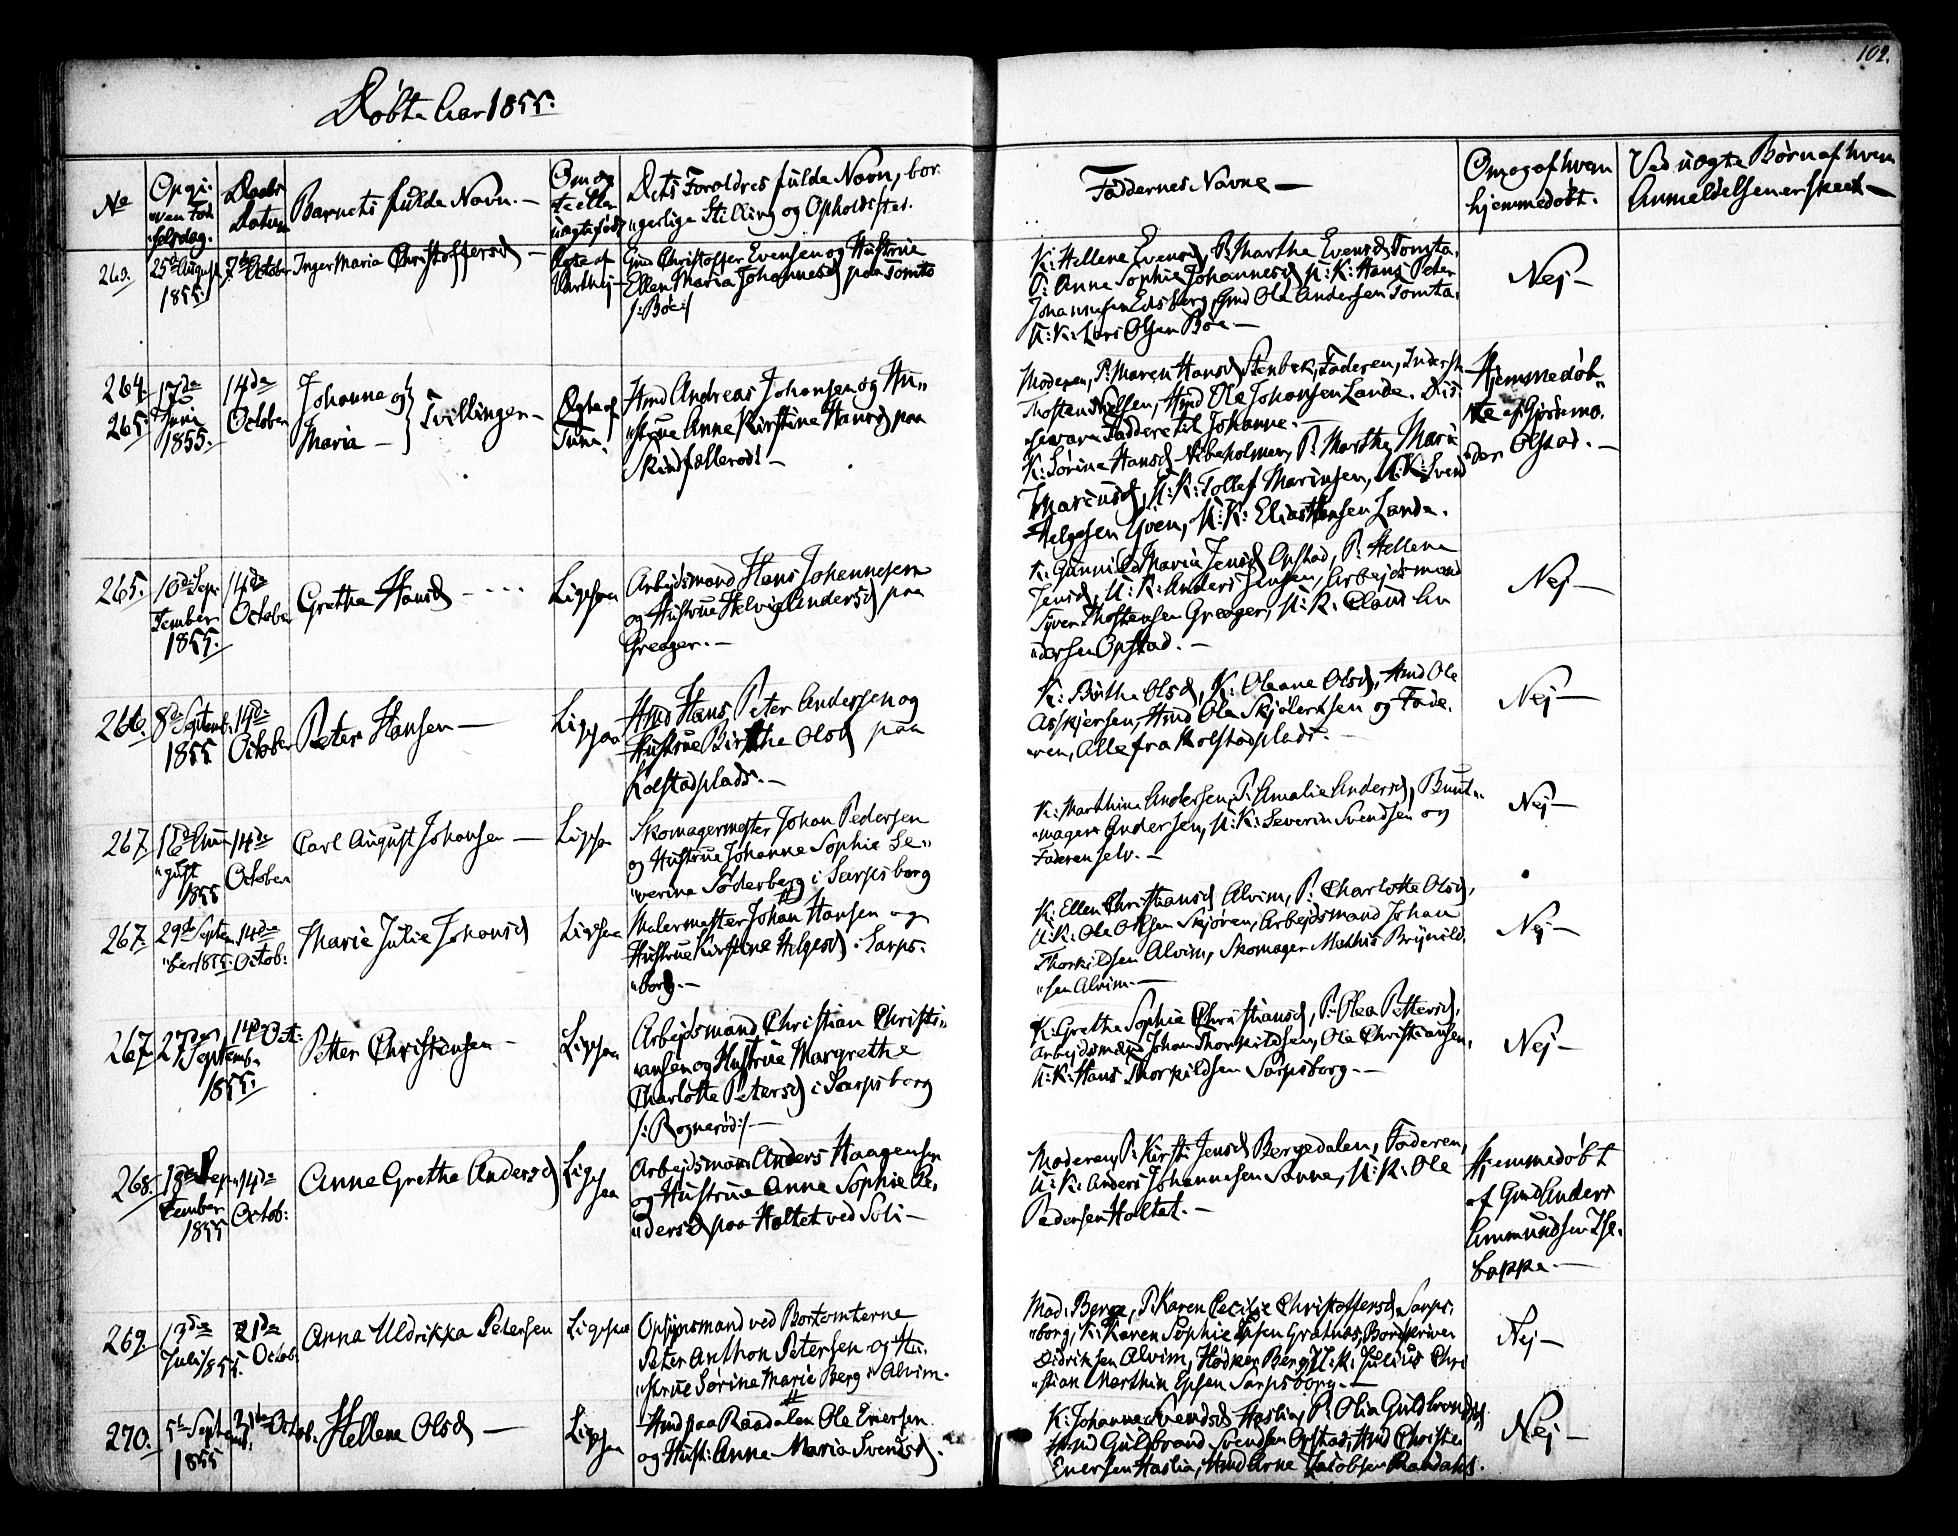 102.
Døbte Aar 1855.
No
Opgi-
ven Fød
selsdag.
Daabs
Datum
Barnets fulde Navn. —
Om æg
te eller
uægte født
Dets Forældres fulde Navn, bor
gerlige Stilling og Opholdsted.
Faddernes Navne —
Om og af hvem
hjemmedøbt.
Ved uægte Børn af hvem
Anmeldelsen er skeet —
263.
25de August
1855
7de October
Inger Maria Christoffersd —
Ægte af
Gmd Christoffer Evensen og Hustrue
Ellen Maria Johannesd paa Tomta
/: Böe :/
K: Hellene Evensd, P: Marthe Evensd Tomta,
P: Anna Sophia Johannesd, U: K: Hans Peter
Johannesen Edsberg, Gmd Ole Andersen Tomta,
U: K: Lars Olsen Böe —
Nej —
264.
265.
17de
Juni
1855.
14de
October
Johanne og
Maria —
Tvillinger —
Ægte af
Tune.
Hmd Andreas Johansen og Hu"
"strue Anne Kirstine Hansd paa
Moderen, P: Maren Hansd Stenbek, Faderen, Inderst
Thosten Nielsen, Hmd Ole Johansen Lande. Dis"
"se vare Faddere til Johanne. —
K: Sørine Hansd P: Marthe Marie
Marcusd, U: K: Tollef Marinsen, U: K: Svend
Helgesen Gven, U: K: Elias Hansen Lande.
Hjemmedøb"
te af Gjørmo.
der Olstad. —
265.
10de Sep
tember
1855.
14de
October
Grethe Hansd - - - -
Ligesaa
Arbejdsmand Hans Johannesen
og Hustrue Helvig Andersd paa
Greager. —
K: Gunnild Maria Jensd Opstad, P: Hellene
Jensd, U: K: Anders Jensen, Arbejdsmand
Syver Thostensen Greager, U: K: Claus An
dersen Opstad. —
Nej —
266.
8de Septemb.
1855
14de
October
Peter Hansen —
Ligesaa
Hmd Hans Peter Andersen og
Hustrue Birthe Olsd paa
Kolstadplads. —
K: Birthe Olsd, K: Oleane Olsd, Hmd Ole
Asskjersen, Hmd Ole Skjølersen og Fade"
"ren, Alle fra Kolstadplads. —
Nej —
267.
Au
gust
1855
14de
October
Carl August Johansen —
Ligesaa
Skomagermester Johan Pedersen
og Hustrue Johanne Sophie Se"
"verine Söderberg i Sarpsborg
K: Marthine Andersen, P: Amalie Andersd, Bunt"
"mager Andersen, U: K: Severin Svendsen og
Faderen selv. —
Nej —
267.
29de Septem
ber 1855.
14de
Octob:
Marie Julie Johansd
Ligesaa
Malermester Johan Hansen og
Hustrue Kirstine Helgesd i Sarps"
"borg. —
K: Ellen Christiansd Alvim, P: Charlotte Olsd,
U: K: Ole Olsen Skjören, Arbejdsmand Johan
Thorkildsen Alvim, Skomager Mathis Brynild"
"sen Alvim. —
Nej —
267.
27de
Septemb.
1855.
14de Oct:
Petter Christensen —
Ligesaa
Arbejdsmand Christian Christi"
"ansen og Hustrue Margrethe
Charlotte Petersd i Sarpsborg
/: Rognerød :/ —
K: Grethe Sophie Christiansd, P: Olea Pettersd,
Arbejdsmænd Johan Thorkildsen, Ole Christiansen,
U: K: Hans Thorkildsen Sarpsborg. —
Nej —
268.
18de Sep
tember
1855
14de
Octob:
Anne Grethe Andersd
Ligesaa
Arbejdsmand Anders Haagensen
og Hustrue Anne Sophie An"
"dersd paa Holtet ved Soli —
Moderen, P: Kirsti Jensd Bergedalen, Faderen,
U: K: Anders Johannesen Sanne, U: K: Ole
Pedersen Holtet. —
Hjemmedøbt
af Gmd Anders
Ammundsen
269.
13de
Juli 1855.
21de
Octob.
Anna Uldrikka Petersen
Ligesaa
Opsynsmand ved Bortomterne
Peter Anthon Petersen og Hu"
"strue Sørine Marie Berg i Alvim.
Mad: Berge, P: Karen Cecilie Christoffersd Sarps"
"borg, K: Karen Sophie Epsen Grathus, Bordskriver
Didriksen Alvim, Høker Berg, U: K: Julius Chri"
"stian Marthin Epsen Sarpsborg. —
Nej —
270.
5te Sept
1855
21de Octob.
Hellene Olsd —
Ligesaa
Hmd paa Raadalen Ole Enersen
og Hust: Anne Maria Svendsd.
K: Johanne Svendsd Haslia, P: Olia Guldbrandsd,
Hmd Guldbrand Svendsen Opstad, Hmd Christen
Enersen Haslia, Hmd Arne Jacobsen Raadalen.
Nej —